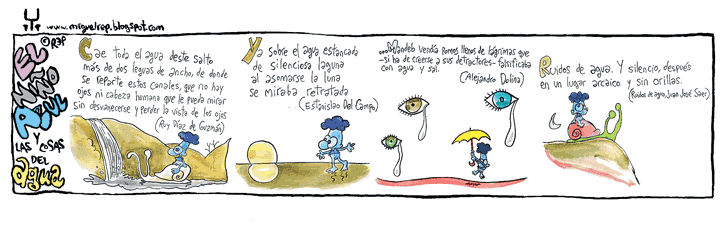 www.miguelrep.blogspot.com
©Rep
EL
NIÑO
AZUL
Y
LAS COSAS
DEL
agua
Cae toda el agua deste salto
más de dos leguas de ancho, de donde
se reparte estos canales, que no hay
ojos ni cabeza humana que le pueda mirar
sin desvanecerse y perder la vista de los ojos
(Ruy Díaz de Guzmán)
Ya sobre el agua estancada
de silenciosa laguna
al asomarse la luna
se miraba retratada
(Estanislao Del Campo)
...Mandeb vendía pomos llenos de lágrimas que
-si ha de creerse a sus detractores- falsificaba
con agua y sal.
(Alejandro Dolina)
Ruidos de agua. Y silencio, después
en un lugar arcaico y sin orillas.
(Ruidos de agua, Juan José Saer)